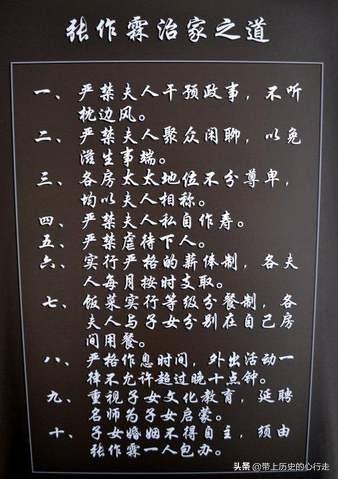 张作霖治家之道
一、严禁夫人干预政事，不听
枕边风。
二、严禁夫人聚众闲聊，以免
滋生事端。
三、各房太太地位不分尊卑，
均以夫人相称。
四、严禁夫人私自作寿。
五、严禁虐待下人。
六、实行严格的薪俸制，各夫
人每月按时支取。
七、饭菜实行等级分餐制，各
夫人与子女分别在自己房
间用餐。
八、严格作息时间，外出活动一
律不允许超过晚十点钟。
九、重视子女文化教育，延聘
名师为子女启蒙。
十、子女婚姻不得自主，须由
张作霖一人包办。
头条 @带上历史的心行走